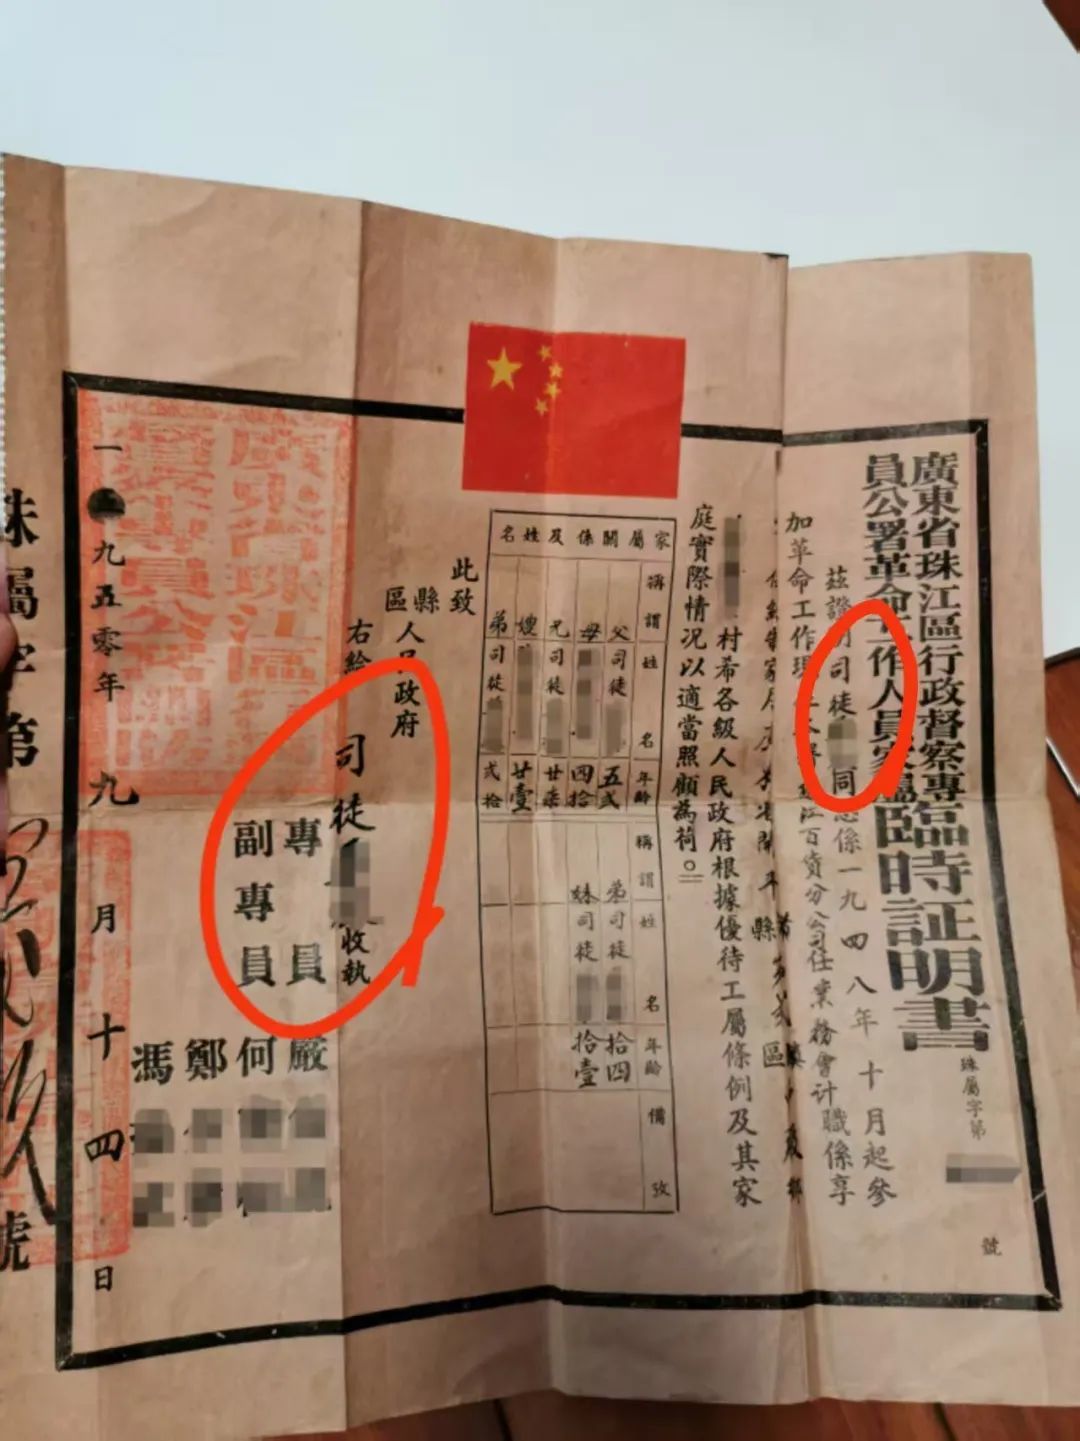 廣東省珠江區行政督察專
員公署革命工作人員家屬
臨時証明書
珠屬字第
號
茲證明司徒
同志係一九四八年十月起參
加革命工作現
珠江百貨分公司任業務會计職係享
開平縣
區
村希各級人民政府根據優待工屬條例及其家
庭實際情况以適當照顧為荷。
家屬關係及姓名
稱謂 姓名 年齡 稱謂 姓名 年齡 備攷
父 司徒 五弍 弟 司徒 拾四
母 四拾 妹 司徒 拾壹
兄 司徒 廿柒
嫂 廿壹
弟 司徒 弍拾
此致
縣
區
人民政府
右給 司徒 收執
專員 嚴
副專員 何
鄭
馮
一九五零年九月十四日
珠屬字第
號